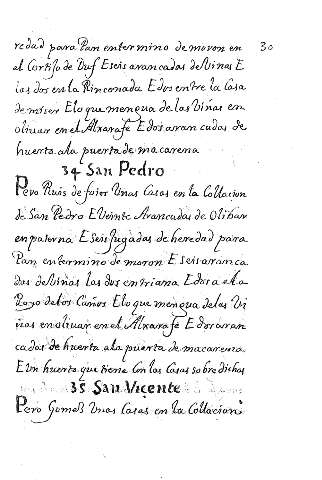 redad para Pan en termino de moron en 30
el Cortijo de Buf E seis arancadas de Viñas E
las dos en la Rinconada E dos entre la Casa
de miser E lo que mengua de las Viñas en
olivar en el Alxarafe E dos arancadas de
huerta a la puerta de macarena
34 San Pedro
Pero Ruis de foios Unas Casas en la Collacion
de San Pedro E Veinte Arancadas de Olibar
en paterna E Seis Jugadas de heredad para
Pan en termino de moron E seis aranca
das de Viñas las dos en triana E dos a la
Pozo de los Caños E lo que mengua de las Vi
ñas en olivar en el Alxarafe E dos aran
cadas de huerta a la puerta de macarena
E Un huerto que tiene Con las Casas sobre dichas
35 San Vicente
Pero Gomes Unas Casas en la Collacion